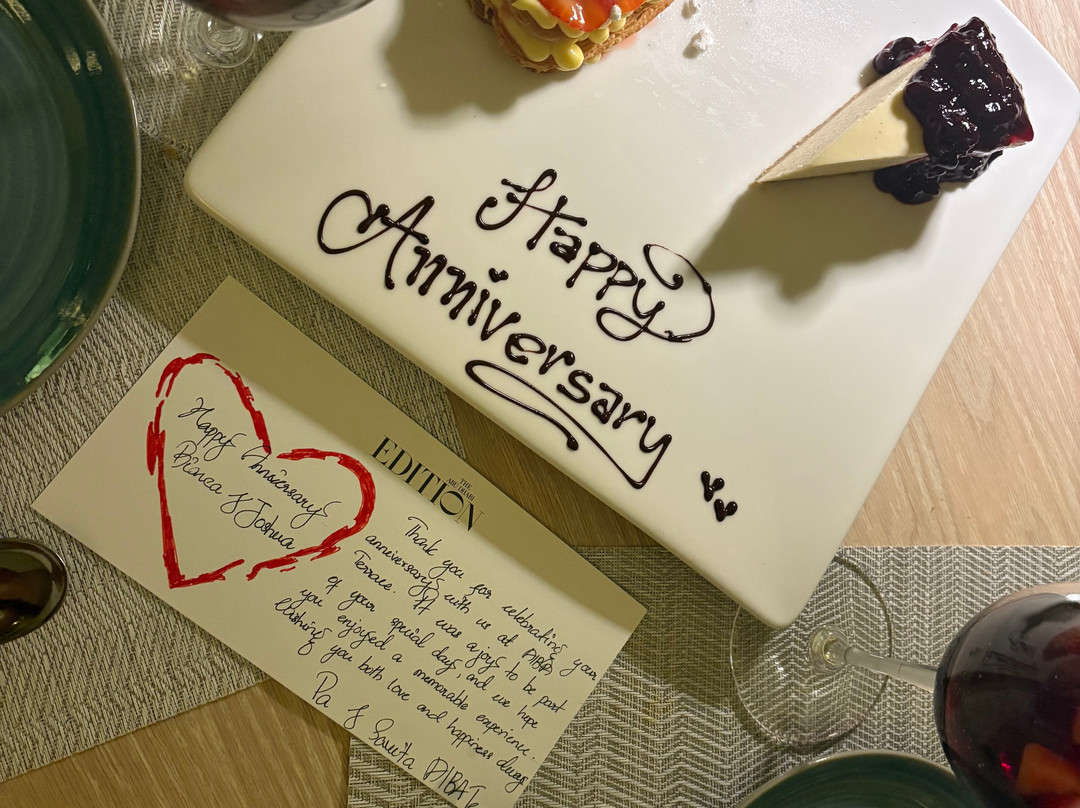 Happy
Anniversary
Happy Anniversary
Bianca & Joshua
THE
ABU DHABI
EDITION
Thank you for celebrating your
anniversary with us at
Terrace. It was a joy to be part
of your special day, and we hope
you enjoyed a memorable experience.
Wishing you both love and happiness always
Pa & Samita